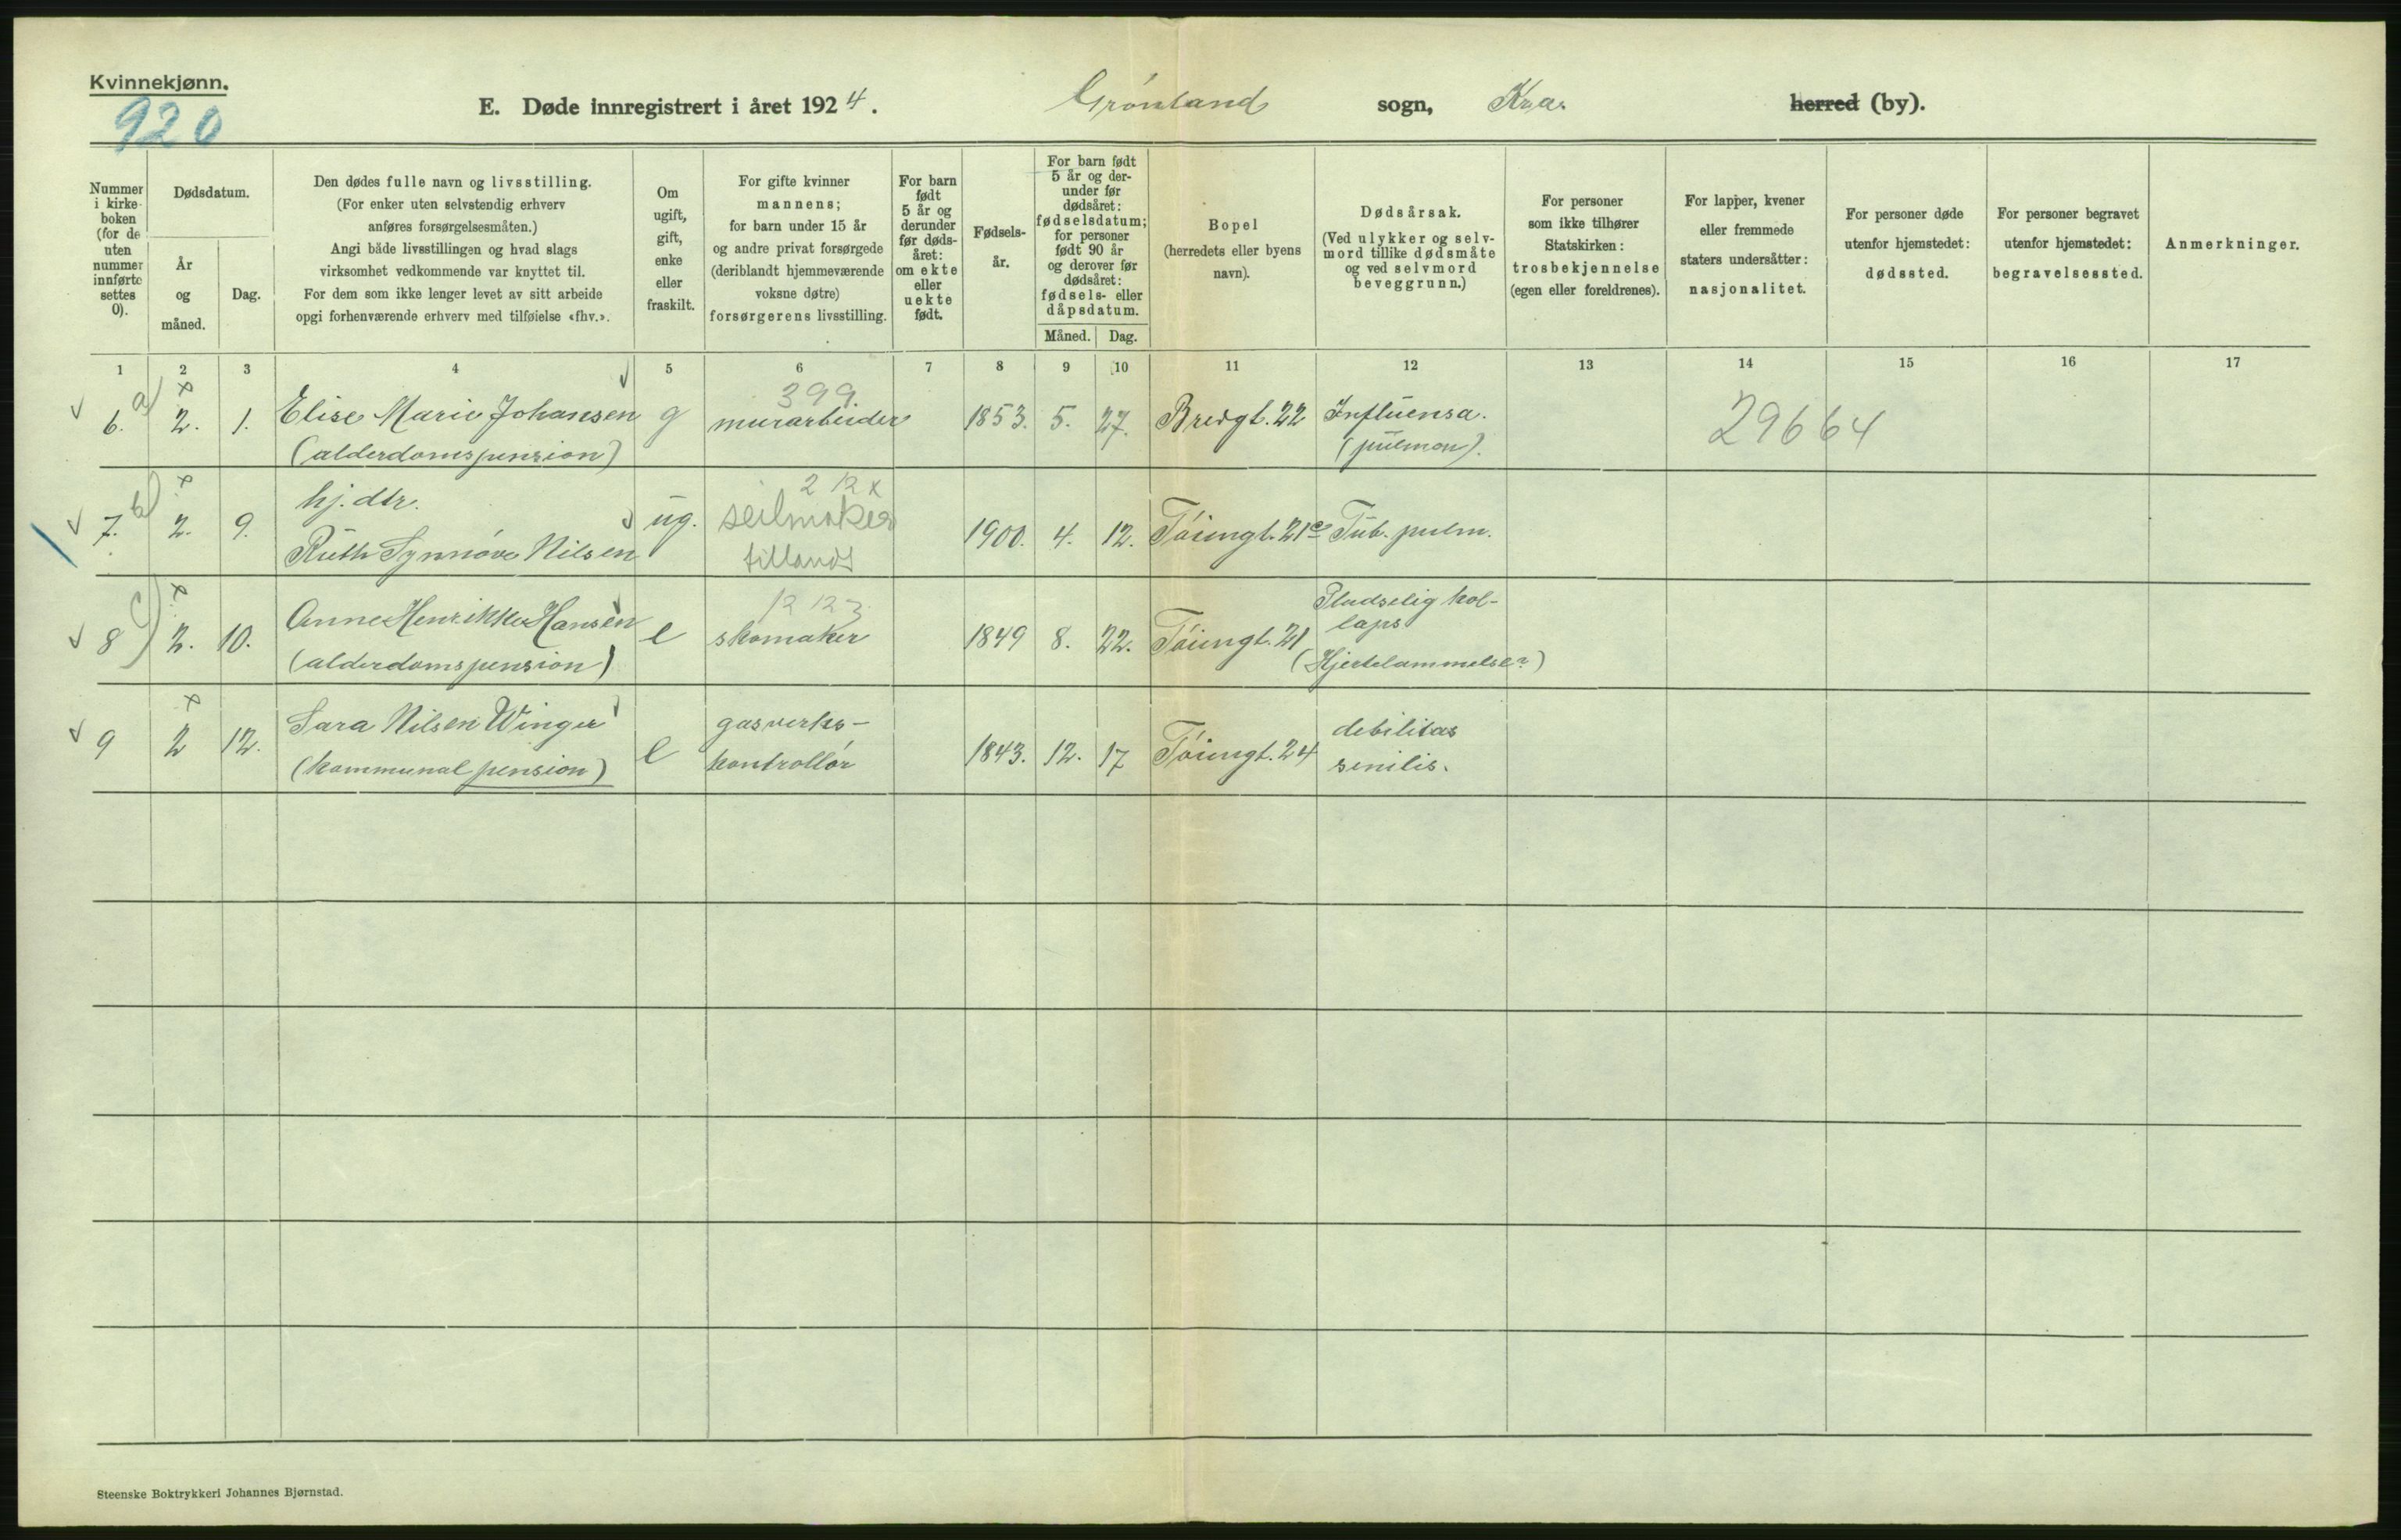 Kvinnekjønn.
920
E. Døde innregistrert i året 1924. Grønland sogn, Kra. herred (by).
Nummer i kirke-boken (for de uten nummer innførte settes 0).
Dødsdatum.
År og måned.
Dag.
Den dødes fulle navn og livsstilling.
(For enker uten selvstendig erhverv
anføres forsørgelsesmåten.)
Angi både livsstillingen og hvad slags
virksomhet vedkommende var knyttet til.
For dem som ikke lenger levet av sitt arbeide
opgi forhenværende erhverv med tilføielse «fhv.».
Om ugift, gift, enke eller fraskilt.
For gifte kvinner
mannens;
for barn under 15 år
og andre privat forsørgede
(deriblandt hjemmeværende
voksne døtre)
forsørgerens livsstilling.
For barn født 5 år og derunder før dødsåret: om ekte eller uekte født.
Fødsels-år.
For barn født 5 år og derunder før dødsåret: fødselsdatum; for personer født 90 år og derover før dødsåret: fødsels- eller dåpsdatum.
Måned. Dag.
Bopel
(herredets eller byens
navn).
Dødsårsak.
(Ved ulykker og selv-
mord tillike dødsmåte
og ved selvmord
beveggrunn.)
For personer
som ikke tilhører
Statskirken:
trosbekjennelse
(egen eller foreldrenes).
For lapper, kvener
eller fremmede
staters undersåtter:
nasjonalitet.
For personer døde
utenfor hjemstedet:
dødssted.
For personer begravet
utenfor hjemstedet:
begravelsessted.
Anmerkninger.
1 2 3 4 5 6 7 8 9 10 11 12 13 14 15 16 17
a) x 399
6. 2. 1. Elise Marie Johansen g murarbeider 1853. 5. 27. Bredgt. 22 Influensa. 29664
(alderdomspension) (pulmon).
b) x hj. dtr. 212x
7. 2. 9. Ruth Synnöve Nilsen ug. seilmaker 1900. 4. 12. Töiengt. 21c Tub. pulm.
tillands
c) x 1223 Pludselig kol-
8 2. 10. Anne Henrikke Hansen e skomaker 1849 8. 22. Töiengt. 21 laps
(alderdomspension) (Hjertelammelse?)
x
9 2 12. Sara Nilsen Winger e gasverks- 1843. 12. 17 Töiengt. 24 debilitas
(kommunal pension) kontrollör senilis.
Steenske Boktrykkeri Johannes Bjørnstad.